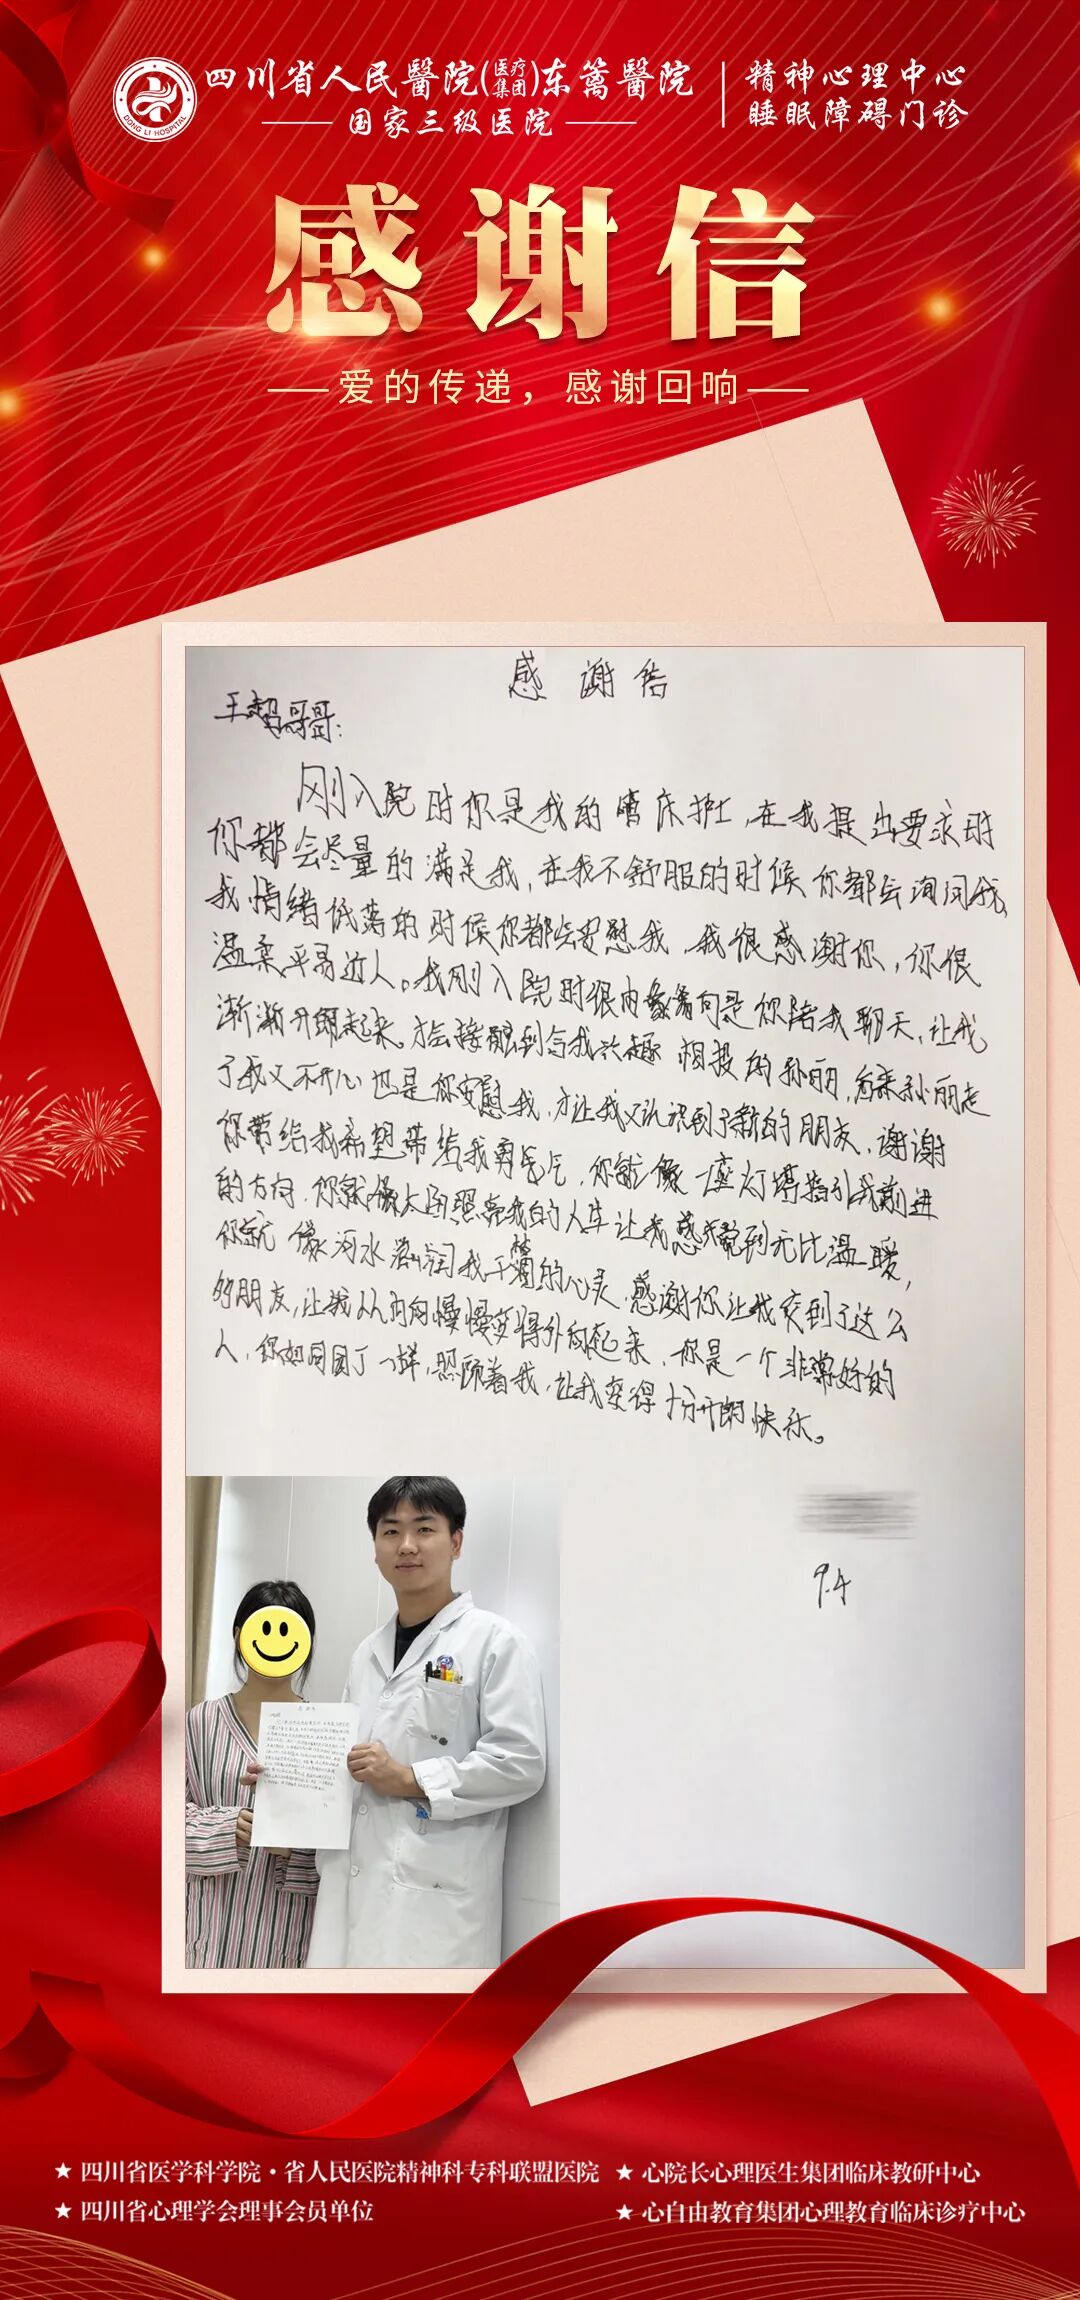 四川省人民醫院(医疗集团)东篱醫院
国家三级医院
精神心理中心
睡眠障碍门诊
DONG LI HOSPITAL
感谢信
爱的传递，感谢回响
感谢信
王超哥哥:
刚入院时你是我的管床护士，在我提出要求时
你都会尽量的满足我，在我不舒服的时候你都会询问我，
我情绪低落的时候你都会安慰我，我很感谢你，你很
温柔，平易近人。我刚入院时很内向是你陪我聊天，让我
渐渐开朗起来。才会接触到与我兴趣相投的孙丽，后来孙丽走
了我又不开心也是你安慰我，才让我又认识到了新的朋友，谢谢
你带给我希望带给我勇气，你就像一座灯塔指引我前进
的方向，你就像太阳照亮我的人生让我感觉到无比温暖，
你就像河水滋润我干燥的心灵，感谢你让我交到了这么
多朋友，让我从内向慢慢变得外向起来，你是一个非常好的
人，你如同园丁一样，照顾着我，让我变得十分开朗快乐。
9.4
★ 四川省医学科学院·省人民医院精神科专科联盟医院
★ 心院长心理医生集团临床教研中心
★ 四川省心理学会理事会员单位
★ 心自由教育集团心理教育临床诊疗中心